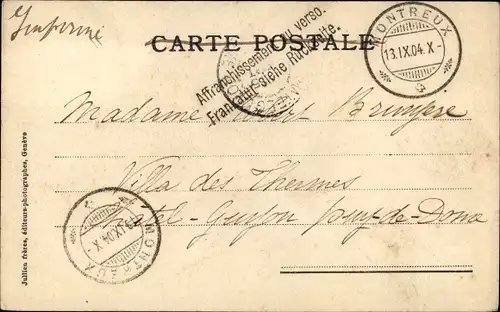 Imprimé
CARTE POSTALE
Affranchissement au verso.
Frankatur siehe Rückseite.
MONTREUX
13.IX.04.X-
Madame Bruyère
Villa des Thermes
Chatel-Guyon Puy-de-Dome
MONTREUX
13.IX.04.X
Jullien frères, éditeurs-photographes, Genève